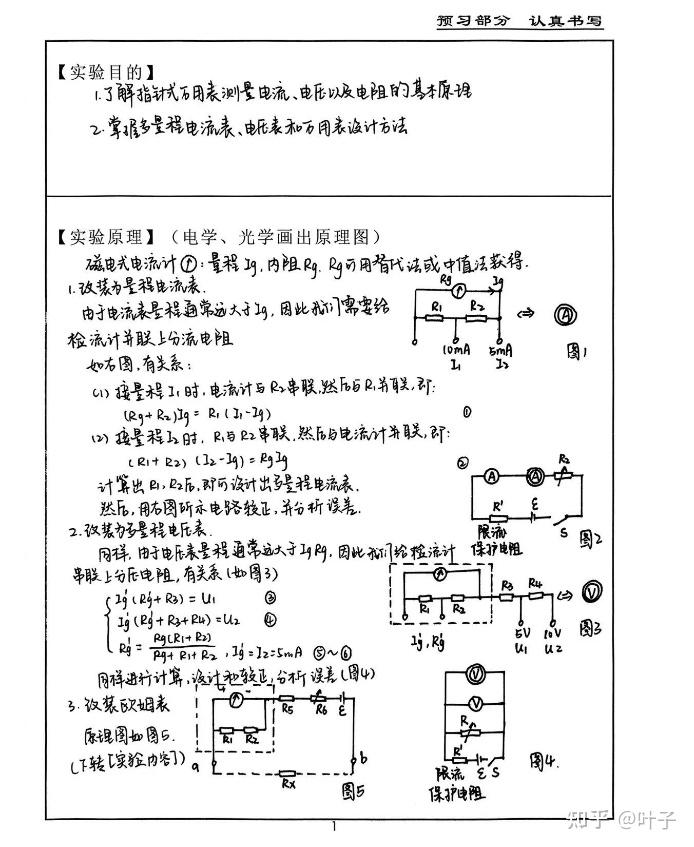 预习部分 认真书写
【实验目的】
1.了解指针式万用表测量电流、电压以及电阻的基本原理
2.掌握多量程电流表、电压表和万用表设计方法
【实验原理】（电学、光学画出原理图）
磁电式电流计：量程Ig,内阻Rg. Rg可用替代法或中值法获得.
1.改装为量程电流表.
由于电流表量程通常远大于Ig,因此我们需要给
检流计并联上分流电阻
如右图,有关系：
(1) 接量程I1时,电流计与R2串联,然后与R1并联,即：
(Rg+R2)Ig = R1(I1-Ig) ①
(2) 接量程I2时, R1与R2串联,然后与电流计并联,即：
(R1+R2)(I2-Ig)=RgIg ②
计算出R1,R2后,即可设计出多量程电流表.
然后,用右图所示电路较正,并分析误差.
Rg Ig
R1 R2
⇔ A
10mA 5mA
I1 I2
图1
A A R2
R' E S
限流
保护电阻
图2
2.改装为多量程电压表.
同样,由于电压表量程通常远大于IgRg,因此我们给检流计
串联上分压电阻,有关系(如图3)
Ig'(Rg'+R3)=U1 ③
Ig'(Rg'+R3+R4)=U2 ④
Rg'=Rg(R1+R2)/Rg+R1+R2 , Ig'=I2=5mA ⑤~⑥
同样进行计算,设计和较正,分析误差(图4)
R1 R2 R3 R4 ⇔ V
Ig', Rg'
5V 10V
U1 U2
图3
3.改装欧姆表
原理图如图5.
(下转[实验内容])
+ - R5 R6 E
R1 R2
a b
Rx
图5
V
V
R
R'
限流 E S
保护电阻
图4.
1
知乎 @叶子